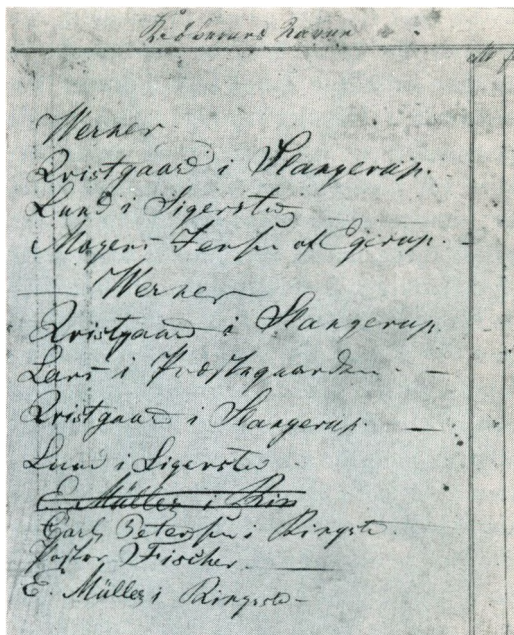 Kiøberens Navne
Werner
Qvistgaard i Slangerup.
Lund i Sigersted
Mogens Jensen af Egerup.
Werner
Qvistgaard i Slangerup.
Lars i Præstegaarden.
Qvistgaard i Slangerup.
Lund i Sigersted
E. Müller i Rin
Carl Petersen i Ringste.
Pastor Fischer.
E. Müller i Ringste